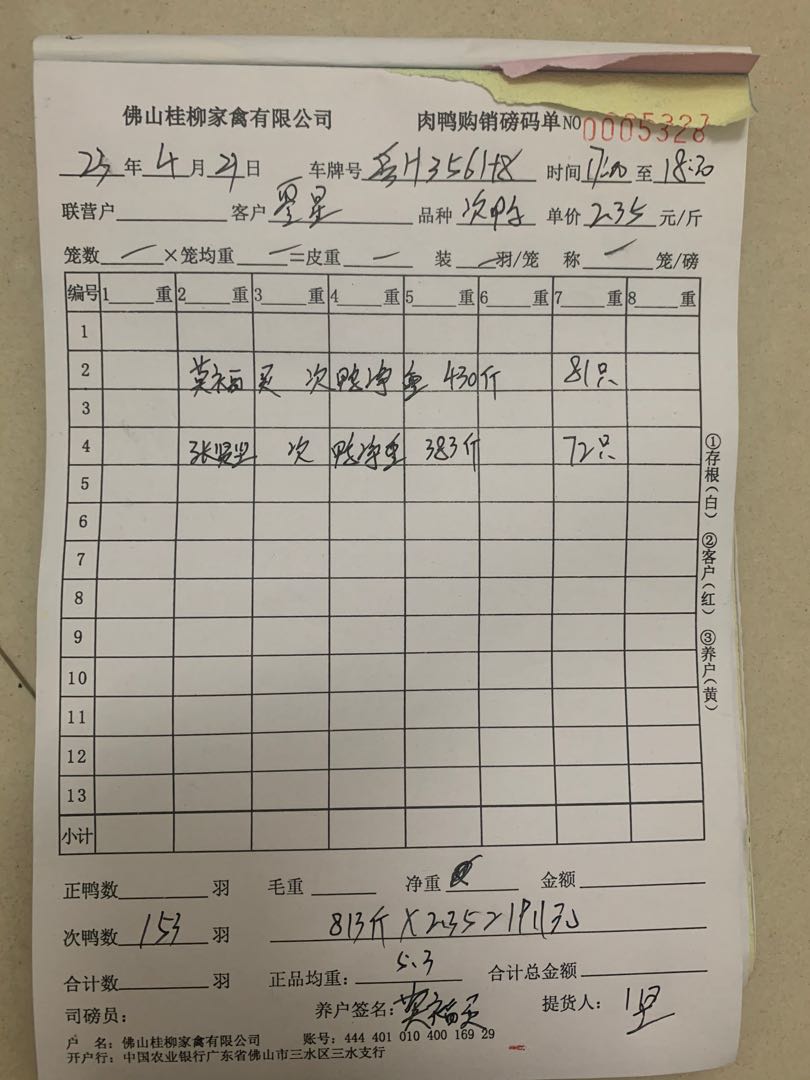 佛山桂柳家禽有限公司 肉鸭购销磅码单 NO 0005328
23 年 4 月 29 日 车牌号 粤H356H8 时间 17:00 至 18:20
联营户 客户 星 品种 次鸭 单价 2.35 元/斤
笼数 — ×笼均重 — =皮重 — 装 — 羽/笼 称 — 笼/磅
编号 1 重 2 重 3 重 4 重 5 重 6 重 7 重 8 重
1
2 莫福灵 次鸭净重 430斤 81只
3
4 张贤坚 次鸭净重 383斤 72只
5
6
7
8
9
10
11
12
13
小计
①存根(白) ②客户(红) ③养户(黄)
正鸭数 羽 毛重 净重 金额
次鸭数 153 羽 813斤×2.35=1911元
合计数 羽 正品均重: 5.3 合计总金额
司磅员: 养户签名: 莫福灵 提货人:
户 名: 佛山桂柳家禽有限公司 账号: 444 401 010 400 169 29
开户行: 中国农业银行广东省佛山市三水区三水支行